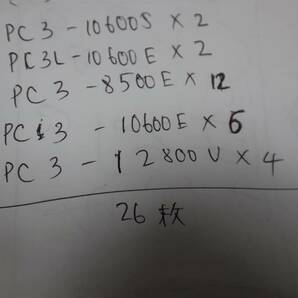 PC3-10600S×2
PC3L-10600E×2
PC3-8500E×12
PC3-10600E×6
PC3-12800U×4
26枚